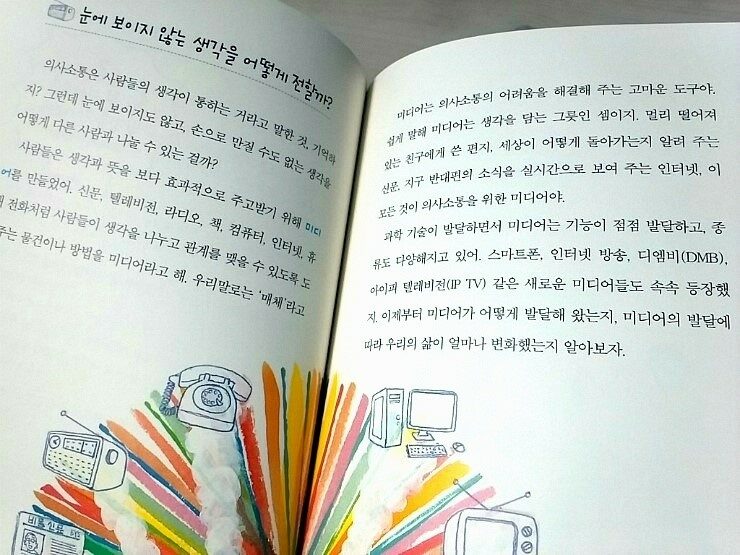 눈에 보이지 않는 생각을 어떻게 전할까?
의사소통은 사람들의 생각이 통하는 거라고 말한 것, 기억하
지? 그런데 눈에 보이지도 않고, 손으로 만질 수도 없는 생각을
어떻게 다른 사람과 나눌 수 있는 걸까?
사람들은 생각과 뜻을 보다 효과적으로 주고받기 위해 미디
어를 만들었어. 신문, 텔레비전, 라디오, 책, 컴퓨터, 인터넷, 휴
전화처럼 사람들이 생각을 나누고 관계를 맺을 수 있도록 도
주는 물건이나 방법을 미디어라고 해. 우리말로는 '매체'라고
미디어는 의사소통의 어려움을 해결해 주는 고마운 도구야.
쉽게 말해 미디어는 생각을 담는 그릇인 셈이지. 멀리 떨어져
있는 친구에게 쓴 편지, 세상이 어떻게 돌아가는지 알려 주는
신문, 지구 반대편의 소식을 실시간으로 보여 주는 인터넷, 이
모든 것이 의사소통을 위한 미디어야.
과학 기술이 발달하면서 미디어는 기능이 점점 발달하고, 종
류도 다양해지고 있어. 스마트폰, 인터넷 방송, 디엠비(DMB),
아이피 텔레비전(IP TV) 같은 새로운 미디어들도 속속 등장했
지. 이제부터 미디어가 어떻게 발달해 왔는지, 미디어의 발달에
따라 우리의 삶이 얼마나 변화했는지 알아보자.